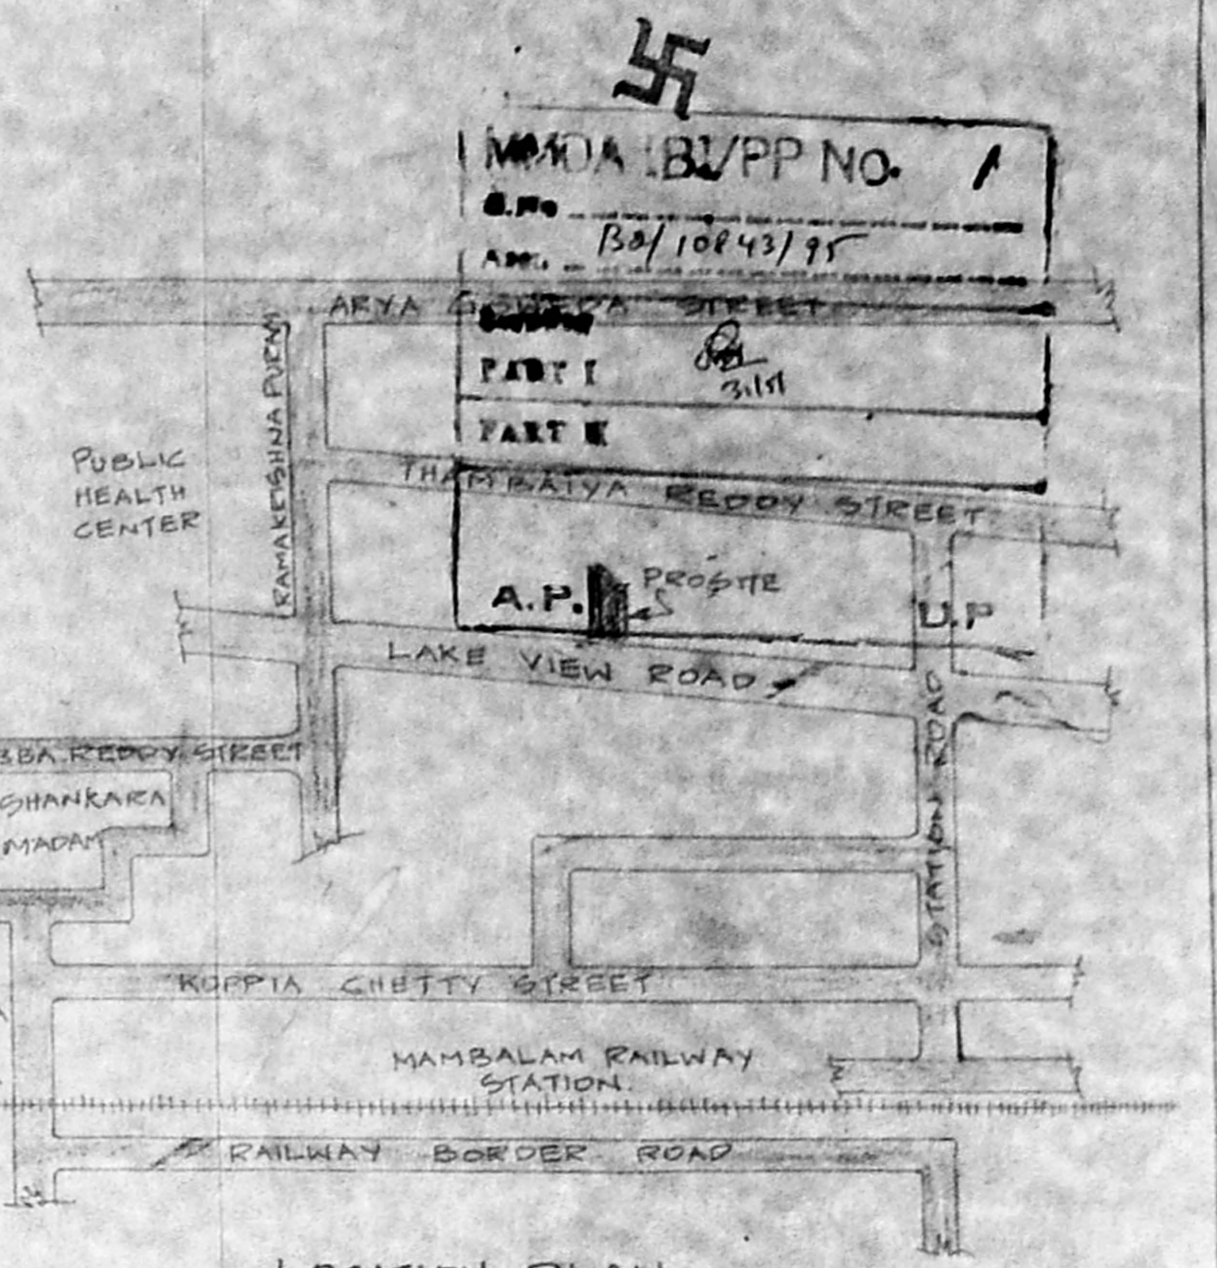 MMDA (B)/PP NO. 1
S.No.
B2/10843/95
ARYA GOWDA STREET
RAMAKRISHNAPURM
PART I
31/5
PART II
PUBLIC
HEALTH
CENTER
THAMBAIYA REDDY STREET
A.P.
PROSITE
U.P
LAKE VIEW ROAD
STATION ROAD
BBA REDDY STREET
SHANKARA
MADAM
KUPPIA CHETTY STREET
MAMBALAM RAILWAY
STATION.
RAILWAY BORDER ROAD
PLAN